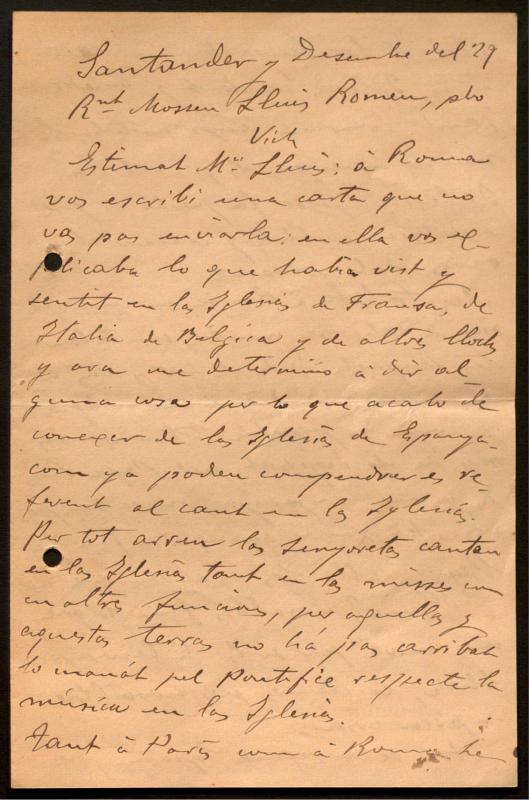 Santander y Desembre del '29
Rnt Mossen Lluis Romeu, pbo
Vich
Estimat Mn Lluis: á Roma
vos escribi una carta que no
vas pas enviarla; en ella vos ex-
plicaba lo que habia vist y
sentit en las Iglesias de Fransa, de
Italia de Belgica y de altres llochs
y ara me determino á dir al
guna cosa per lo que acabo de
conexer de las Iglesias de Espanya
com ya poden compendrer es re-
ferent al cant en las Iglesias.
Per tot arreu las senyoretas cantan
en las Iglesias tant en las misses com
en altres funcions, per aquellas y
aquestas terras no há pas arribat
lo manát pel pontifice respecte la
música en las Iglesias.
Tant á Paris com á Roma he